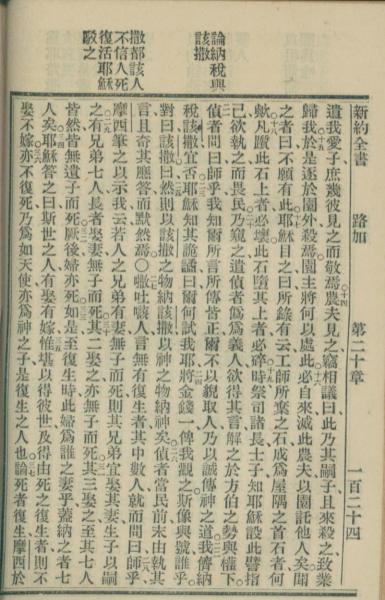 新約全書 路加 第二十章 一百二十四
論納稅與
該撒
撒都該人
不信人死
復活耶穌
駁之
遣我愛子庶幾彼見之而敬焉農夫見之竊相議曰此乃其嗣子且來殺之致業
歸我於是逐於園外殺焉園主將何以處此必自來滅此農夫以園託他人矣聞
之者曰不願有此耶穌目之曰所錄有云工師所棄之石成爲屋隅之首石者何
歟凡躓此石上者必壞此石墮其上者必碎時祭司諸長士子知耶穌設此譬指
己欲執之而畏民乃窺之遣偵者僞爲義人欲得其言解之於方伯之勢與權下
偵者問曰師乎我知爾所言所傳皆正爾不以貌取人乃以誠傳神之道我儕納
稅該撒宜否耶穌知其詭譎曰爾何試我耶將金錢一俾我觀之斯像與號誰乎
對曰該撒曰然則以該撒之物納該撒以神之物納神矣偵者當民前未由執其
言且奇其應答而默然焉〇吐人言無有復生者其中數人就而問曰師乎
摩西筆之以示我云若人之兄弟有妻無子而死則其兄弟宜娶其妻生子以嗣
之有兄弟七人長者娶妻無子而死其二娶之亦無子而死其三娶之至其七人
皆然皆無遺子而死厥後婦亦死如是至復生時此婦爲誰之妻乎蓋納之者七
人矣耶穌答之曰斯世之人有娶有嫁惟堪以得彼世及得由死之復生者則不
娶不嫁亦不復死乃爲如天使亦爲神之子是復生之人也論死者復生摩西於